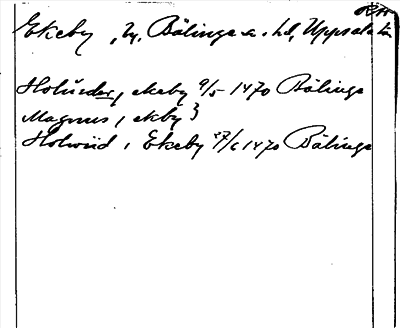 RH
Ekeby, Ty. Bälinge s. hd, Uppsala län
Holuider, ekeby 9/5 1470 Bälinge
Magnus, ekby }
Holwid, Ekeby 27/6 1470 Bälinge